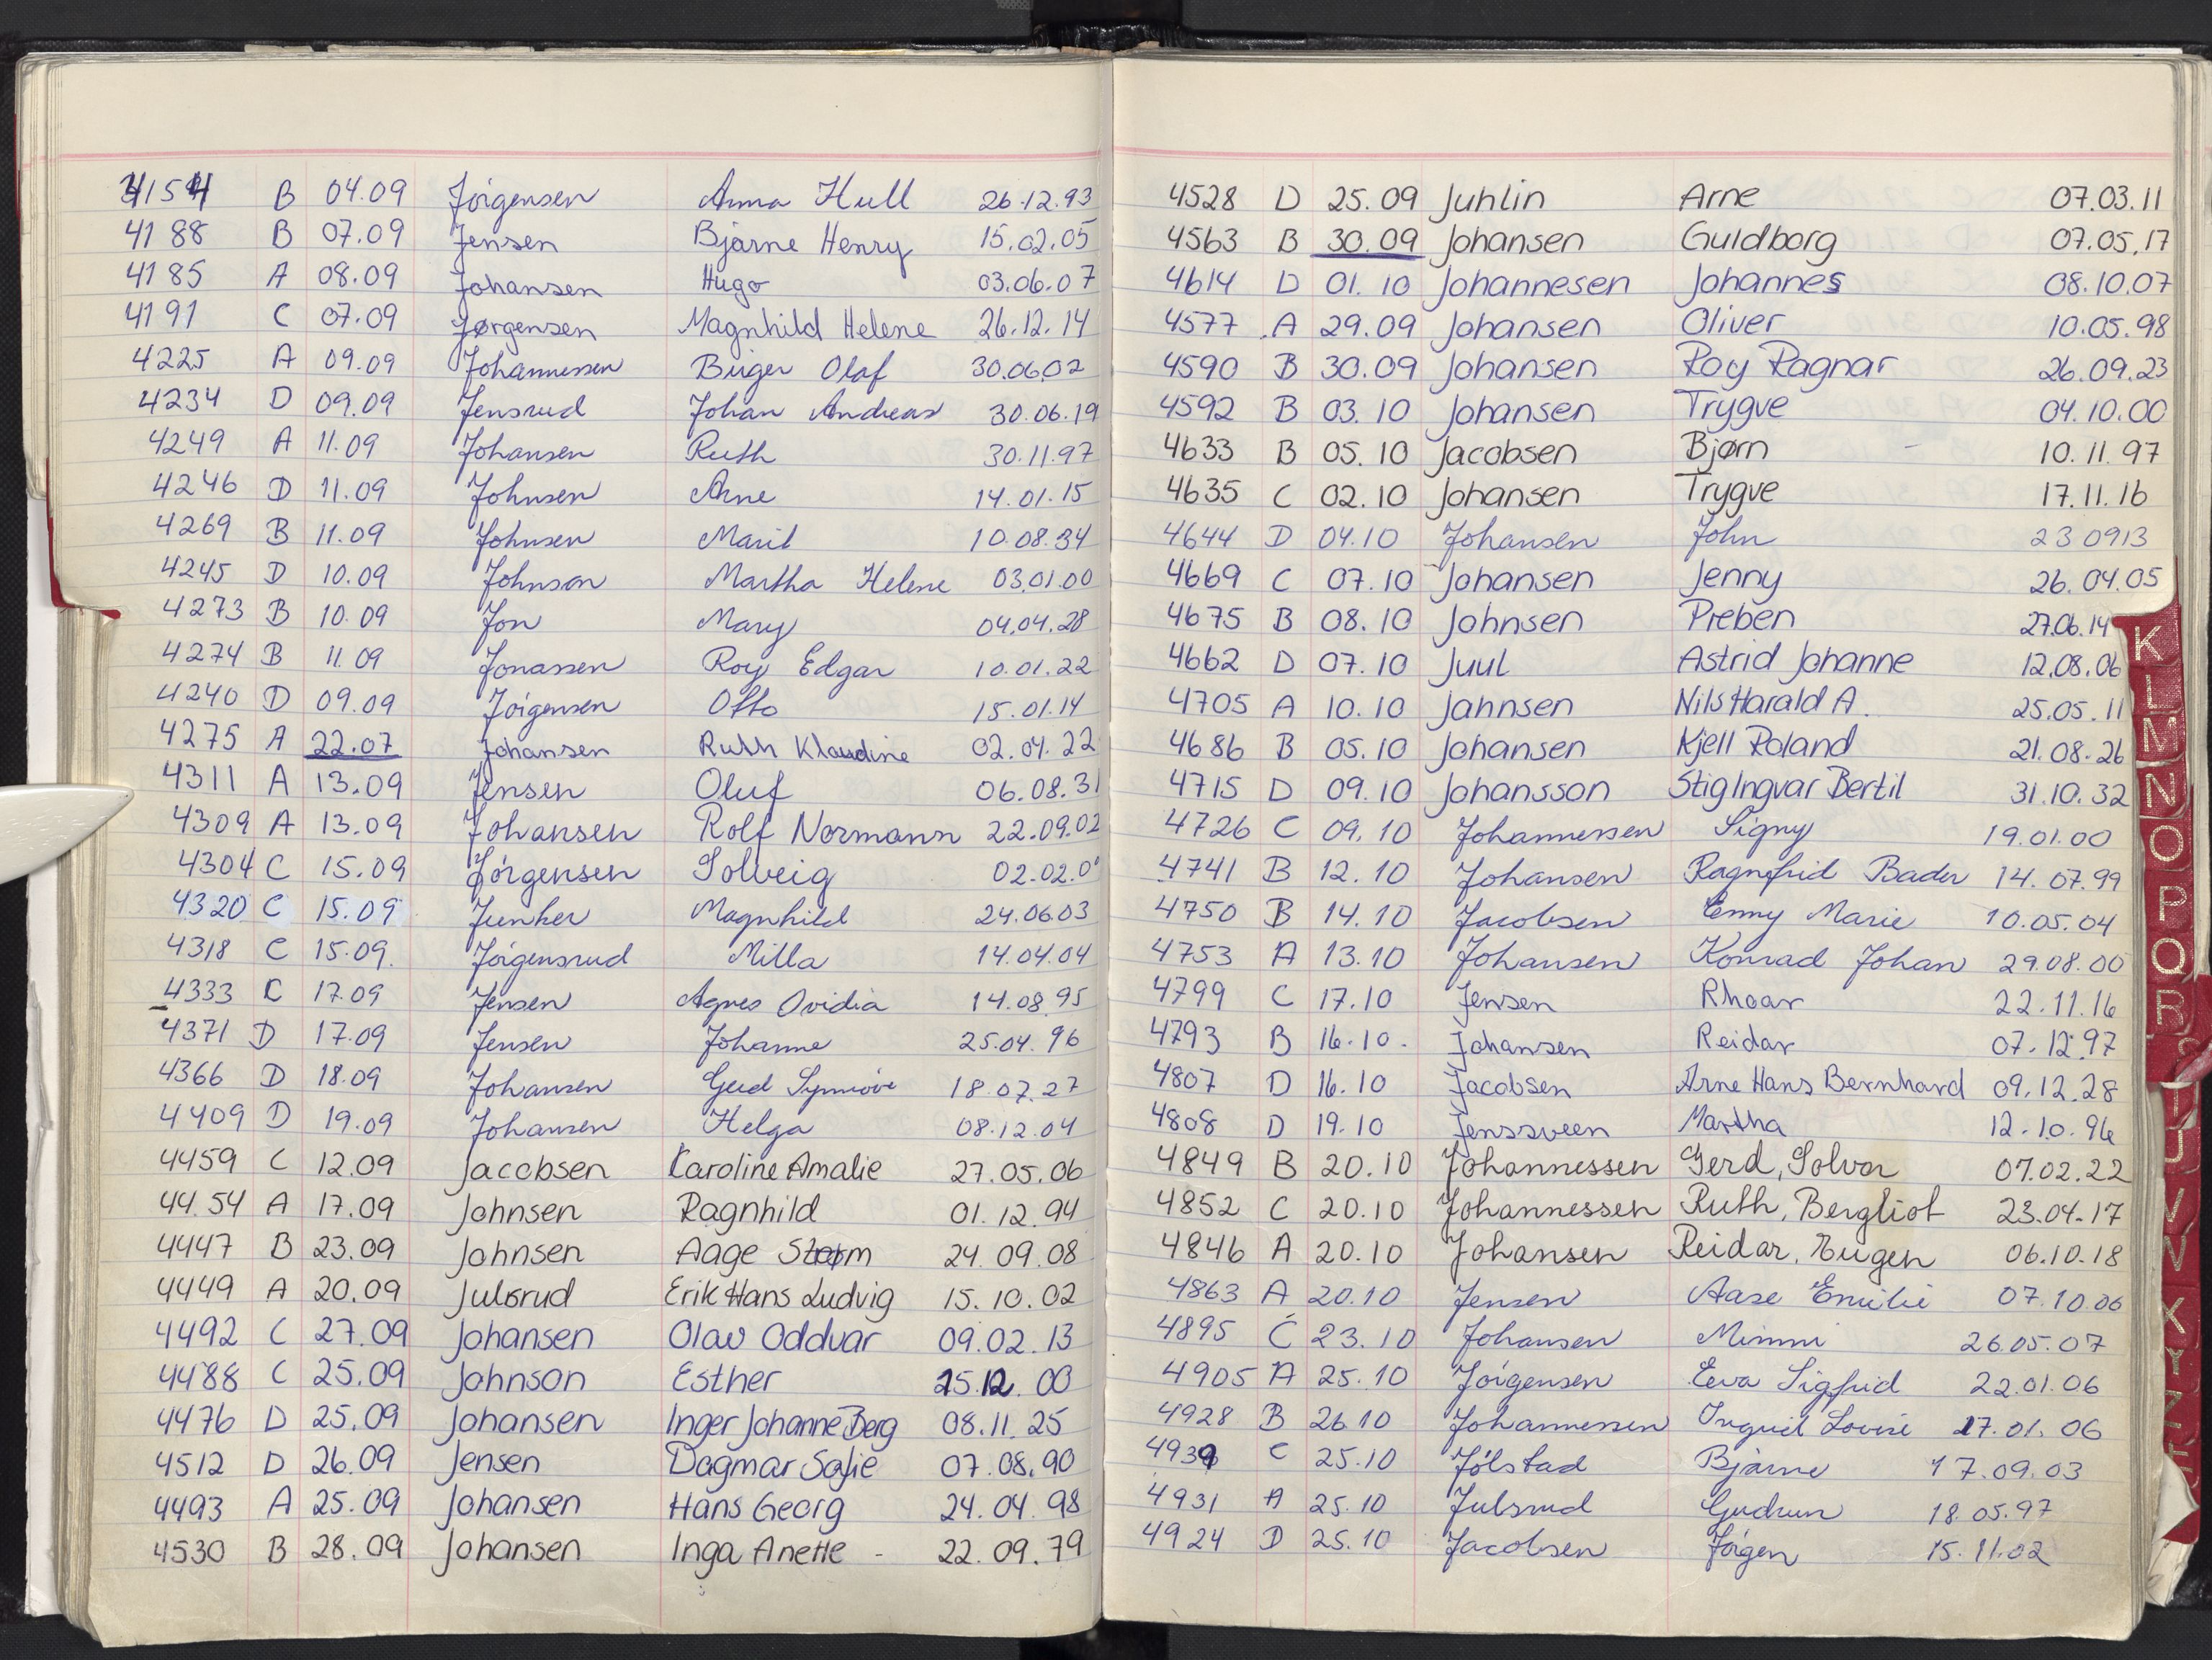 4154 B 04.09 Jörgensen Anna Hull 26.12.93
4188 B 07.09 Jensen Bjarne Henry 15.02.05
4185 A 08.09 Johansen Hugo 03.06.07
4191 C 07.09 Jørgensen Magnhild Helene 26.12.14
4225 A 09.09 Johannessen Birger Olaf 30.06.02
4234 D 09.09 Jensrud Johan Andreas 30.06.19
4249 A 11.09 Johansen Ruth 30.11.97
4246 D 11.09 Johnsen Arne 14.01.15
4269 B 11.09 Johnsen Marit 10.08.34
4245 D 10.09 Johnson Martha Helene 03.01.00
4273 B 10.09 Jon Mary 04.04.28
4274 B 11.09 Jonassen Roy Edgar 10.01.22
4240 D 09.09 Jörgensen Otto 15.01.14
4275 A 22.07 Johansen Ruth Klaudine 02.04.22
4311 A 13.09 Jensen Oluf 06.08.31
4309 A 13.09 Johansen Rolf Normann 22.09.02
4304 C 15.09 Jörgensen Solveig 02.02.0
4320 C 15.09 Junker Magnhild 24.06.03
4318 C 15.09. Jörgensrud Milla 14.04.04
4333 C 17.09 Jensen Agnes Ovidia 14.08.95
4371 D 17.09 Jensen Johanne 25.04.96
4366 D 18.09 Johansen Gerd Synnöve 18.07.27
4409 D 19.09 Johansen Helga 08.12.04
4459 C 12.09 Jacobsen Karoline Amalie 27.05.06
44.54 A 17.09 Johnsen Ragnhild 01.12.94
4447 B 23.09 Johnsen Aage Storm 24.09.08
4449 A 20.09 Julsrud Erik Hans Ludvig 15.10.02
4492 C 27.09 Johansen Olav Oddvar 09.02.13
4488 C 25.09 Johnson Esther 25.12.00
4476 D 25.09 Johansen Inger Johanne Berg 08.11.25
4512 D 26.09 Jensen Dagmar Sofie 07.08.90
4493 A 25.09 Johansen Hans Georg 24.04.98
4530 B 28.09 Johansen Inga Anette - 22.09.79
4528 D 25.09 Juhlin Arne 07.03.11
4563 B 30.09 Johansen Guldborg 07.05.17
4614 D 01.10 Johannesen Johannes 08.10.07
4577 A 29.09 Johansen Oliver 10.05.98
4590 B 30.09 Johansen Roy Ragnar 26.09.23
4592 B 03.10 Johansen Trygve 04.10.00
4633 B 05.10 Jacobsen Bjørn - 10.11.97
4635 C 02.10 Johansen Trygve 17.11.16
4644 D 04.10 Johansen John 23 0913
4669 C 07.10 Johansen Jenny 26.04.05
4675 B 08.10 Johnsen Preben 27.06.14
4662 D 07.10 Juul Astrid Johanne 12.08.06
4705 A 10.10 Jahnsen Nils Harald A. 25.05.11
4686 B 05.10 Johansen Kjell Roland 21.08.26
4715 D 09.10 Johansson Stig Ingvar Bertil 31.10.32
4726 C 09.10 Johannessen Signy 19.01.00
4741 B 12.10 Johansen Ragnfrid Bader 14.07.99
4750 B 14.10 Jacobsen Enny Marie 10.05.04
4753 A 13.10 Johansen Konrad Johan 29.08.00
4799 C 17.10 Jensen Rhoar 22.11.16
4793 B 16.10. Johansen Reidar 07.12.97
4807 D 16.10 Jacobsen Arne Hans Bernhard 09.12.28
4808 D 19.10 Jenssveen Martha 12.10.96
4849 B 20.10 Johannessen Gerd, Solvor 07.02.22
4852 C 20.10 Johannessen Ruth, Bergliot 23.04.17
4846 A 20.10 Johansen Reidar, Eugen 06.10.18
4863 A 20.10 Jensen Aase Emilie 07.10.06
4895 C 23.10 Johansen Mimmi 26.05.07
4905 A 25.10 Jörgensen Eva Sigfrid 22.01.06
4928 B 26.10 Johannessen Ingrid Lovise 27.01.06
4939 C 25.10 Jölstad Bjarne 17.09.03
4931 A 25.10 Julsrud Gudrun 18.05.97
4924 D 25.10 Jacobsen Jörgen 15.11.02
K
L
M
N
O
P
Q
R
U
V
X
Y
Z